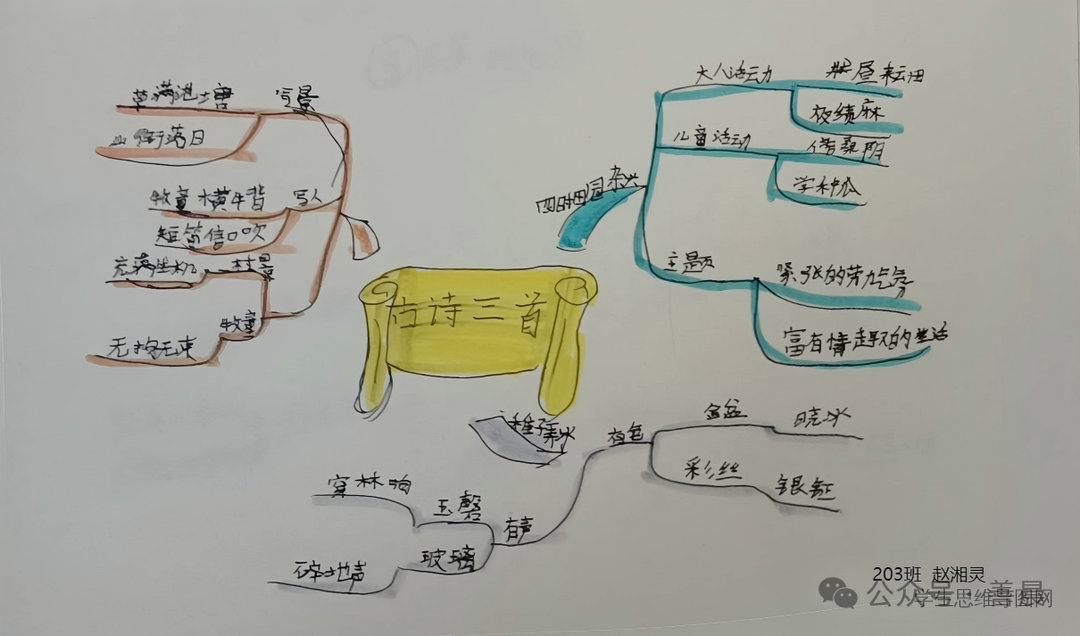 古诗三首
四时田园杂兴
大人活动
昼耘田
夜绩麻
儿童活动
借桑阴
学种瓜
主题
紧张的劳力气氛
富有情趣的生活
稚子弄冰
有色
金盆
晓冰
彩丝
银钲
有声
玉磬
穿林响
玻璃
碎地声
写景
草满池塘
山衔落日
写人
牧童横牛背
短笛信口吹
村景
充满生机
牧童
无拘无束
203班 赵湘灵
公众号·善曼
学生思维导图网